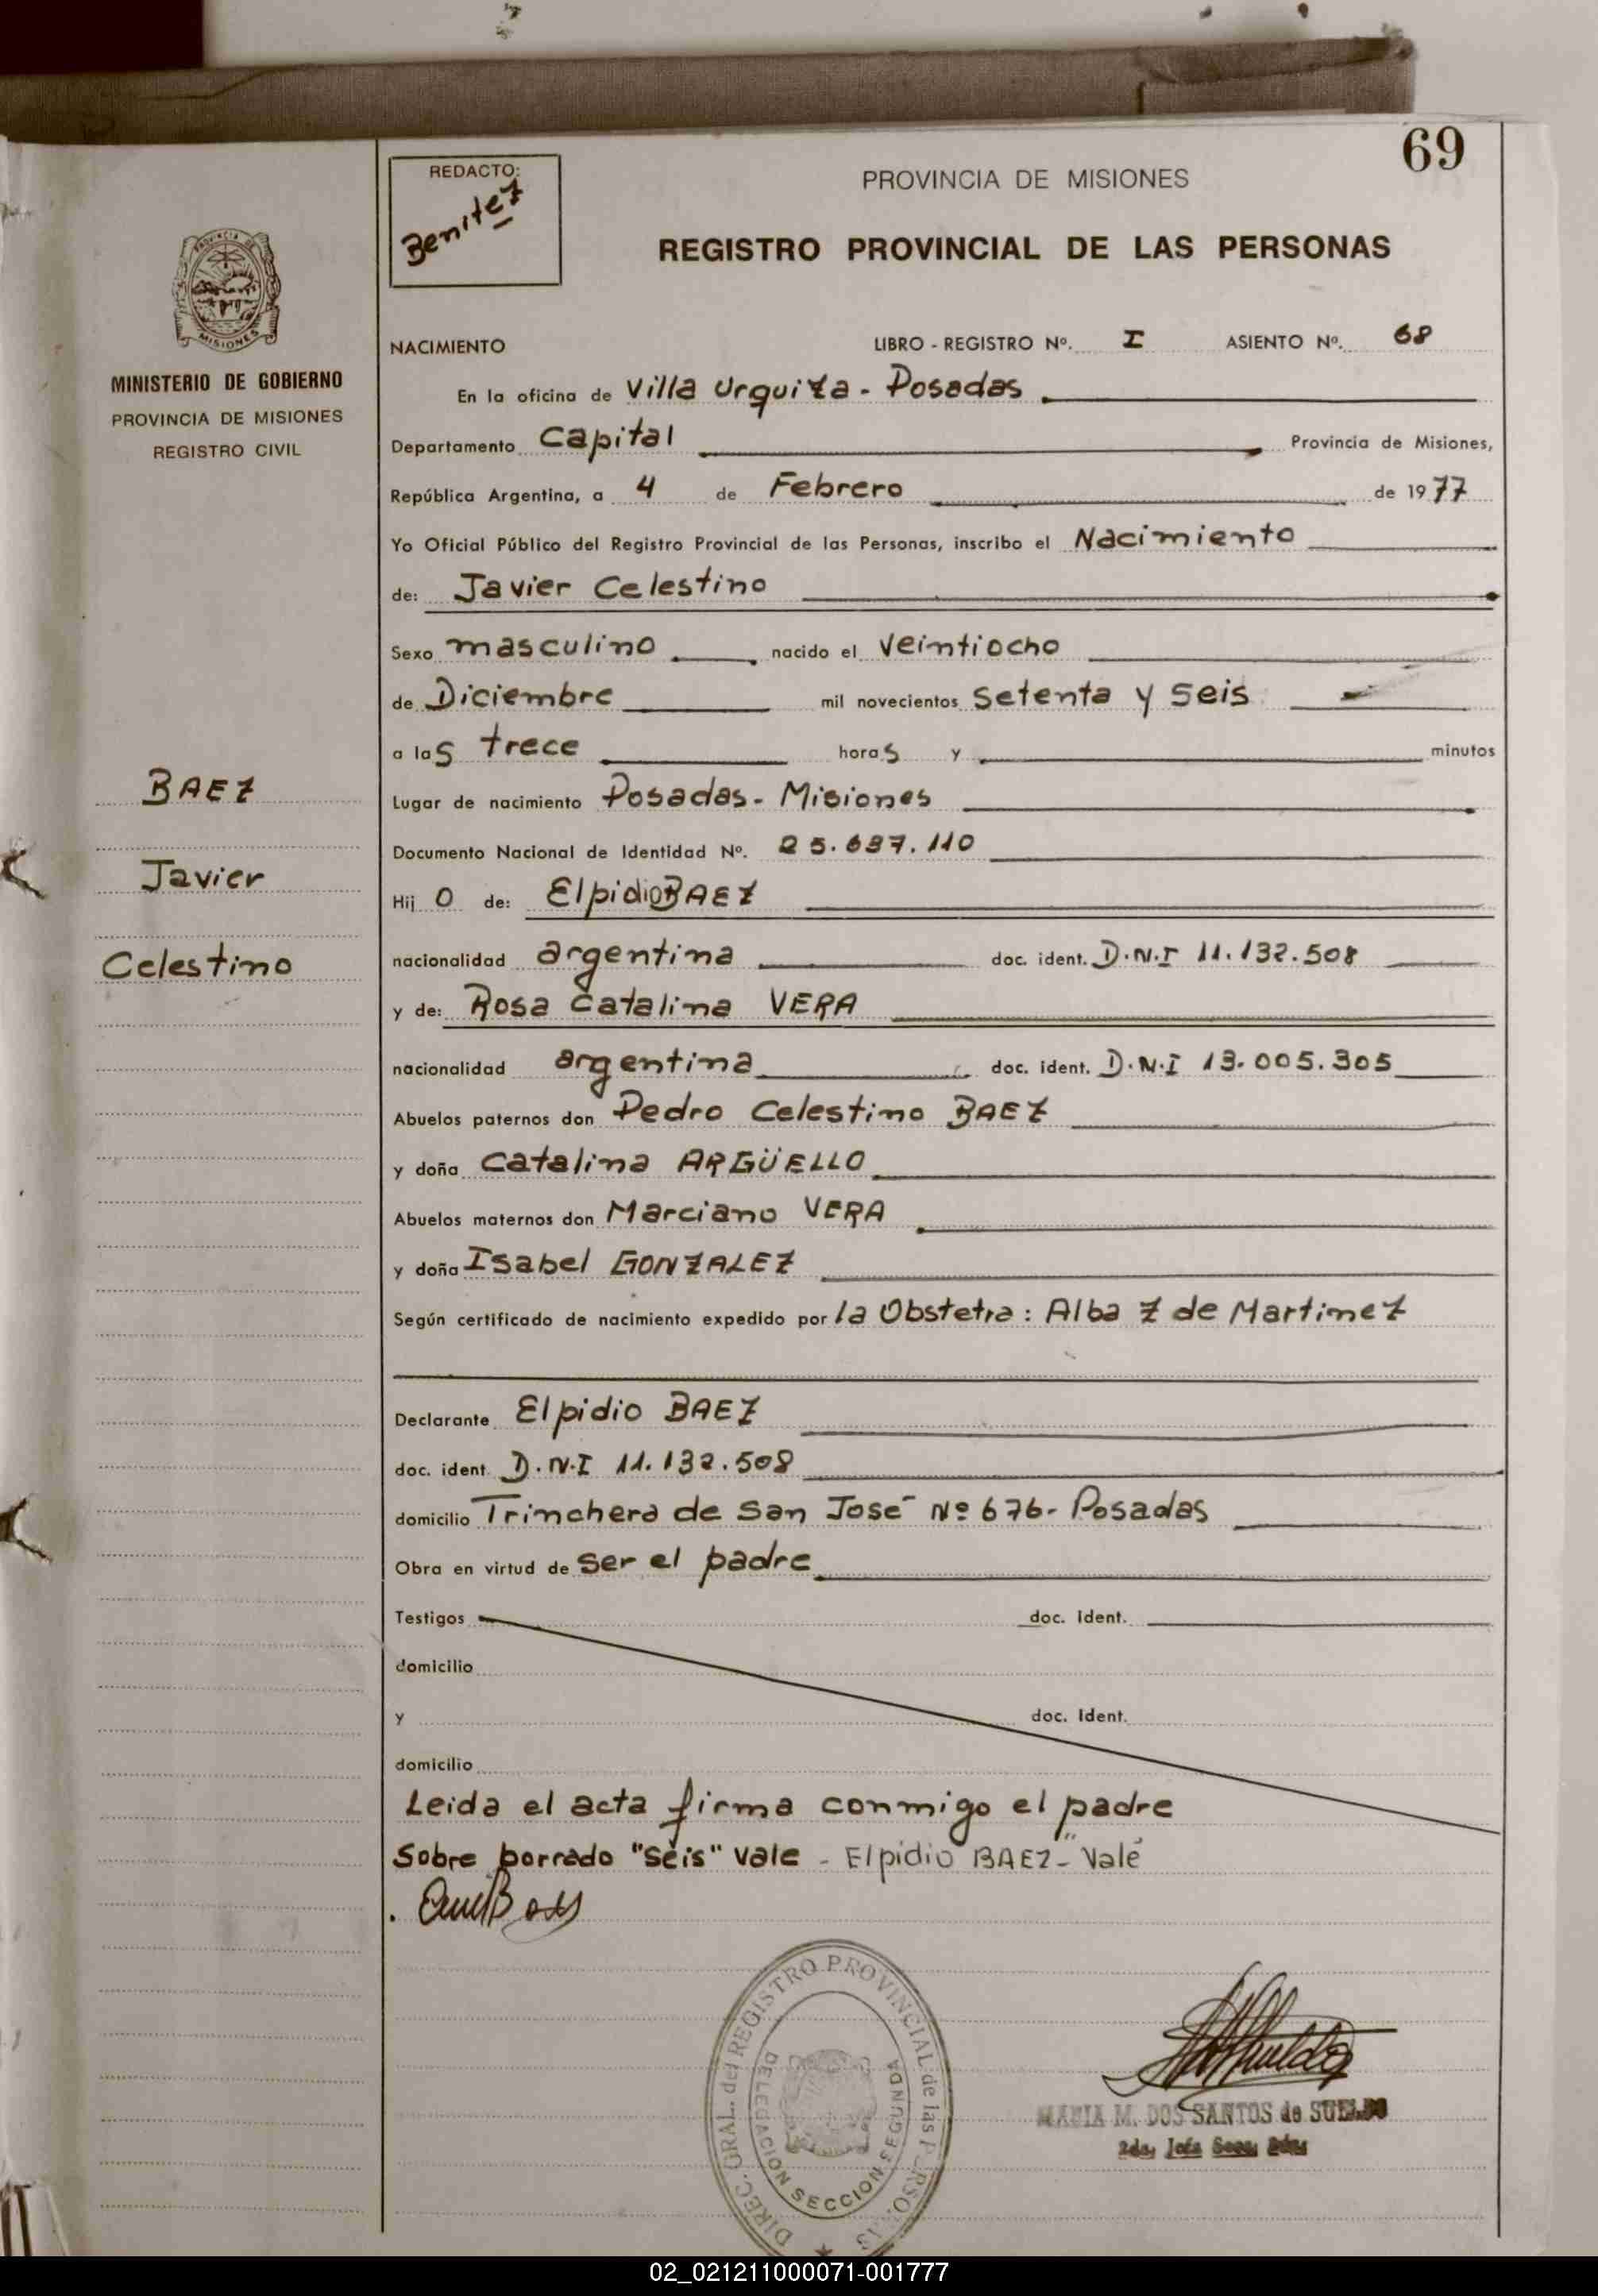 69
REDACTO:
Benitez
PROVINCIA DE MISIONES
REGISTRO PROVINCIAL DE LAS PERSONAS
MISIONES
MINISTERIO DE GOBIERNO
PROVINCIA DE MISIONES
REGISTRO CIVIL
BAEZ
Javier
Celestino
NACIMIENTO LIBRO - REGISTRO Nº. I ASIENTO Nº. 68
En la oficina de Villa Urquiza - Posadas
Departamento Capital Provincia de Misiones,
República Argentina, a 4 de Febrero de 1977
Yo Oficial Público del Registro Provincial de las Personas, inscribo el Nacimiento
de: Javier Celestino
Sexo masculino nacido el veintiocho
de Diciembre mil novecientos setenta y seis
a las trece horas y minutos
Lugar de nacimiento Posadas - Misiones
Documento Nacional de Identidad Nº. 25.687.110
Hijo de: Elpidio BAEZ
nacionalidad argentina doc. ident. D.N.I 11.132.508
y de: Rosa Catalina VERA
nacionalidad argentina doc. ident. D.N.I 13.005.305
Abuelos paternos don Pedro Celestino BAEZ
y doña Catalina ARGÜELLO
Abuelos maternos don Marciano VERA
y doña Isabel GONZALEZ
Según certificado de nacimiento expedido por la Obstetra: Alba Z de Martinez
Declarante Elpidio BAEZ
doc. ident. D.N.I 11.132.508
domicilio Trinchera de San José Nº 676 - Posadas
Obra en virtud de ser el padre
Testigos doc. Ident.
domicilio
y doc. Ident.
domicilio
Leida el acta firma conmigo el padre
Sobre borrado "seis" vale - Elpidio BAEZ" - Vale
DIREC. GRAL. del REGISTRO PROVINCIAL de las
DELEGACION SECCION SEGUNDA
MARIA M. DOS SANTOS de SUELDO
02_021211000071-001777